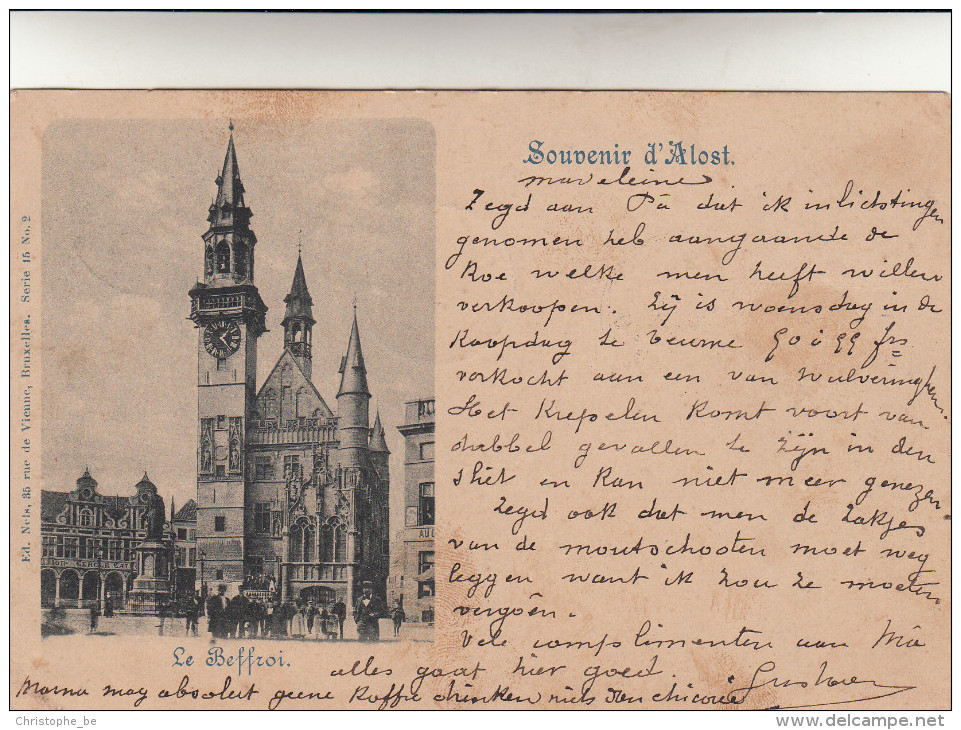 Souvenir d'Alost.
Madeleine
Zegd aan Pâ dat ik inlichtingen
genomen heb aangaande de
Koe welke men heeft willen
verkoopen. Zij is woensdag in de
Koopdag te veurne 90 à 99 frs
verkocht aan een van Wulveringhem.
Het Krepelen Komt voort van
dubbel gevallen te zijn in den
shit en Kan niet meer genezen
Zegd ook dat men de Zakjes
van de moutschooten moet weg
leggen want ik zou ze moeten
vergoên.
Vele complimenten aan Mâ
alles gaat hier goed.
Mama mag absolut geene Koffie drinken niets dan chicorée
Le Beffroi.
Ed. Nels, 35 rue de Vienne, Bruxelles. Serie 15 No. 2
AU
Christophe_be